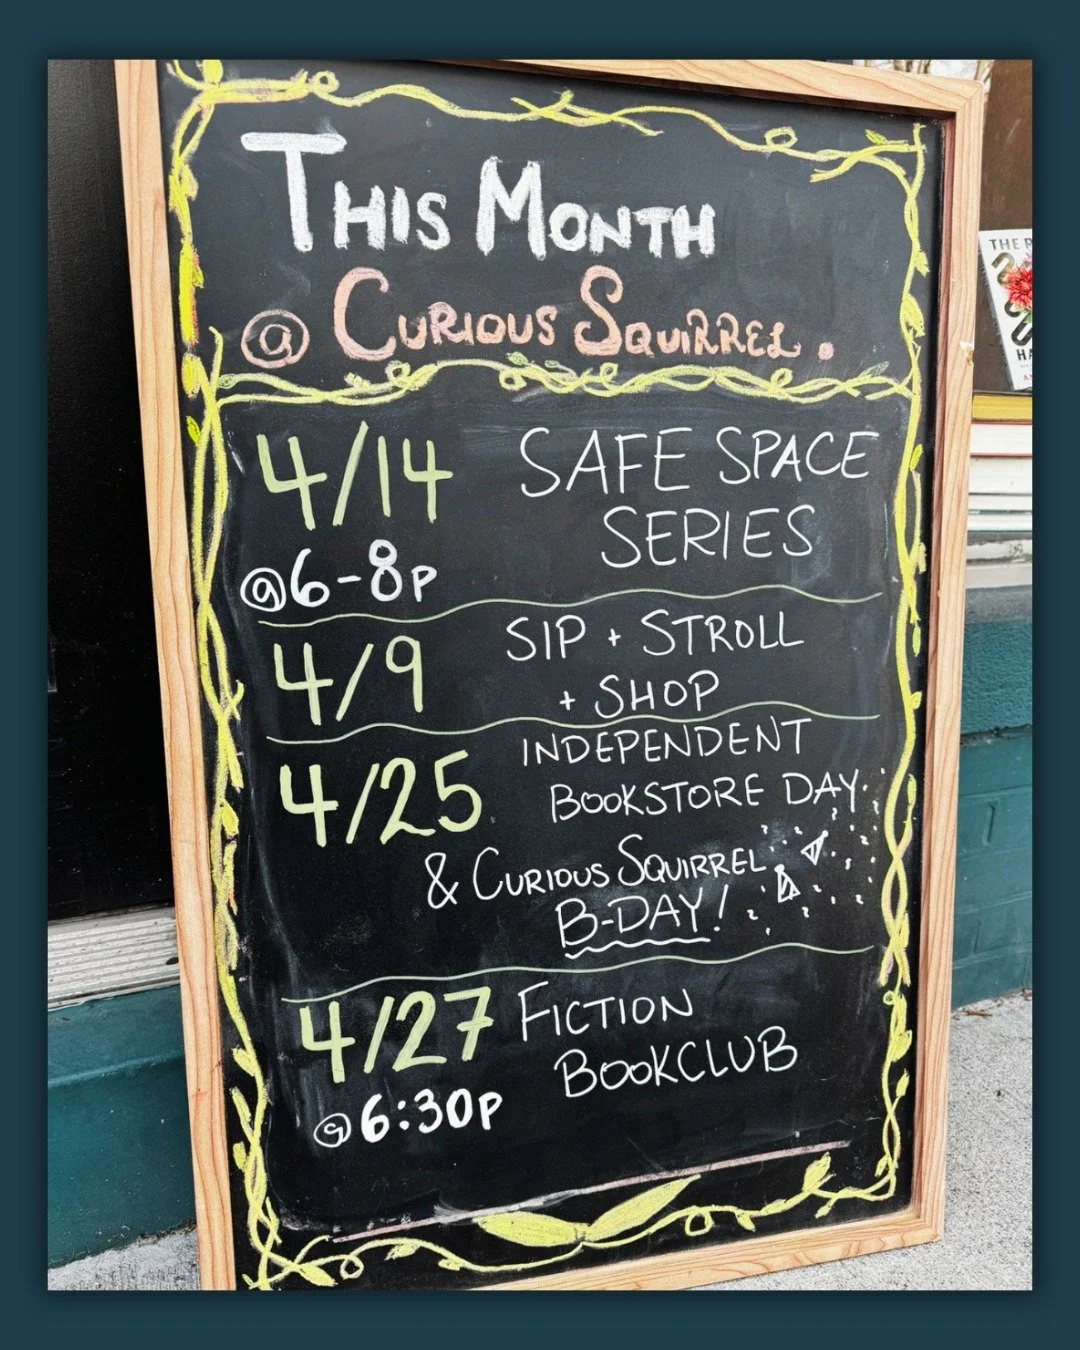 THIS MONTH
@ CURIOUS SQUIRREL.
4/14 SAFE SPACE
SERIES
@6-8P
4/9 SIP + STROLL
+ SHOP
4/25 INDEPENDENT
BOOKSTORE DAY
& CURIOUS SQUIRREL
B-DAY!
4/27 FICTION
BOOKCLUB
@6:30P
THE